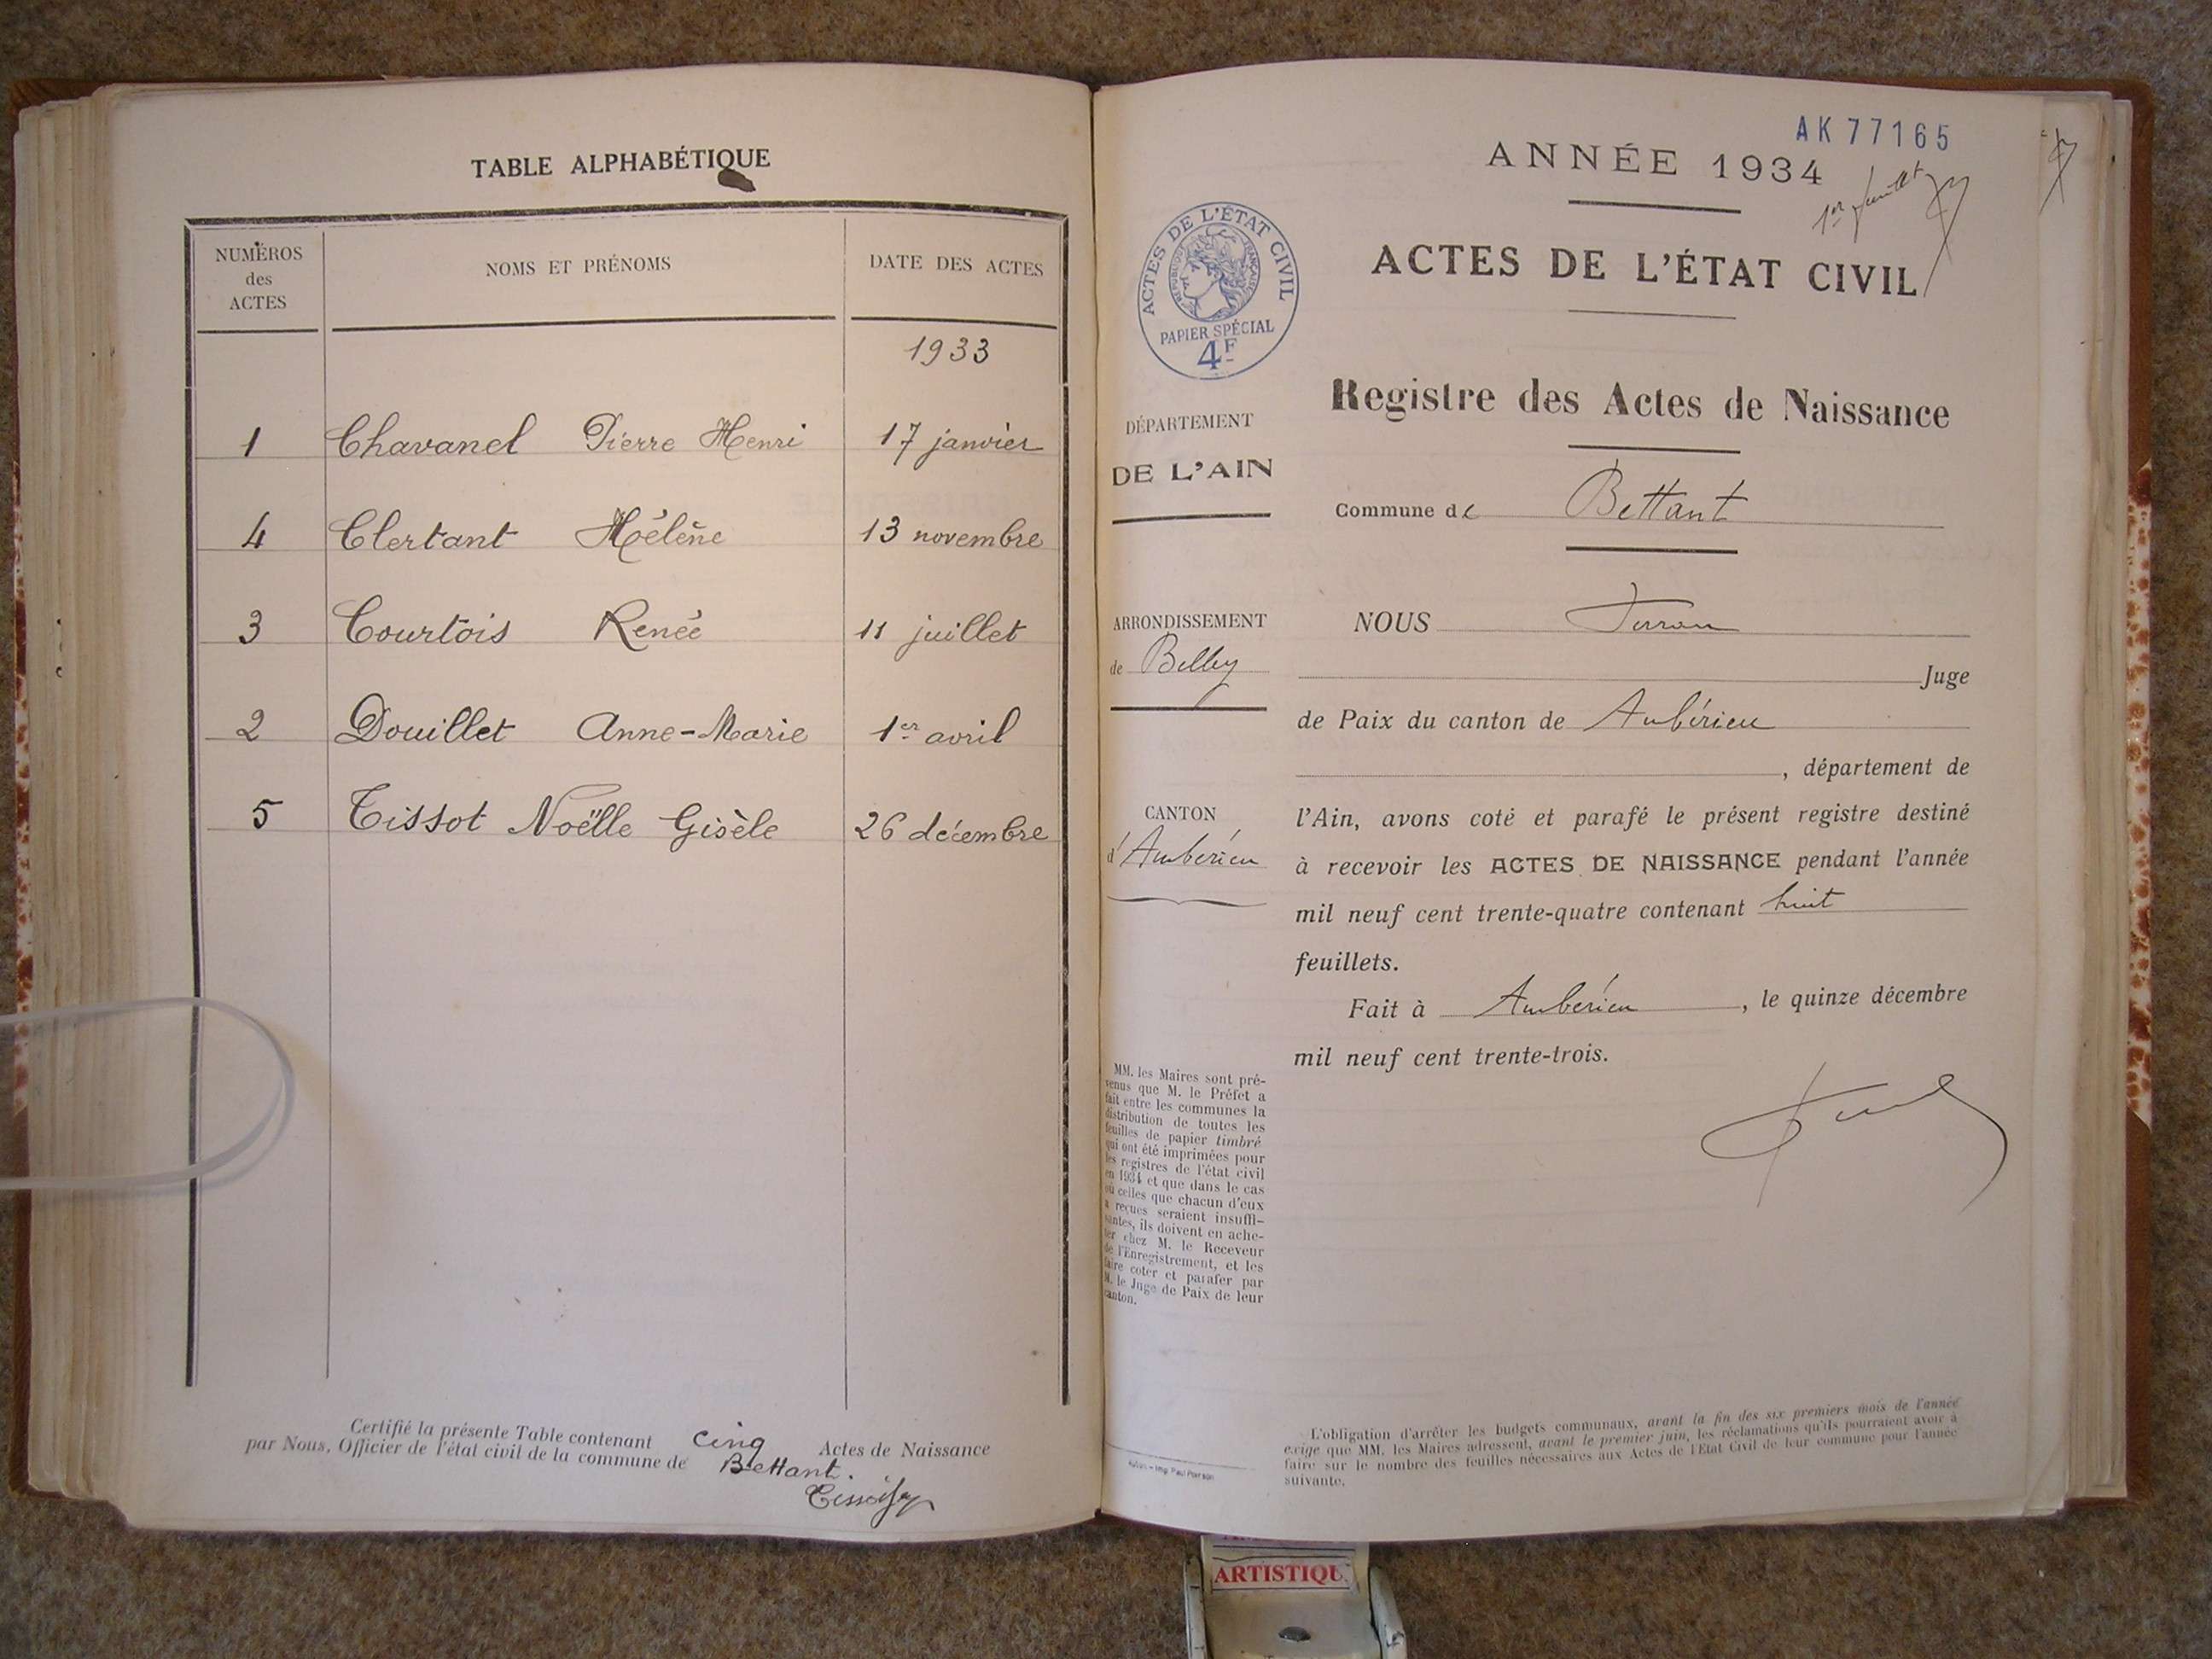 TABLE ALPHABÉTIQUE
NUMÉROS
des
ACTES
NOMS ET PRÉNOMS
DATE DES ACTES
1933
1 Chavanel Pierre Henri 17 janvier
4 Clertant Hélène 13 novembre
3 Courtois Renée 11 juillet
2 Douillet Anne-Marie 1er avril
5 Tissot Noëlle Gisèle 26 décembre
Certifié la présente Table contenant cinq Actes de Naissance
par Nous, Officier de l'état civil de la commune de Bettant.
AK 77165
ANNÉE 1934
1er feuillet
ACTES DE L'ÉTAT CIVIL
RÉPUBLIQUE FRANÇAISE
PAPIER SPÉCIAL
4F
ACTES DE L'ÉTAT CIVIL
Registre des Actes de Naissance
DÉPARTEMENT
DE L'AIN
Commune de Bettant
ARRONDISSEMENT
de Belley
CANTON
d'Ambérieu
NOUS
Juge
de Paix du canton de Ambérieu
, département de
l'Ain, avons coté et parafé le présent registre destiné
à recevoir les ACTES DE NAISSANCE pendant l'année
mil neuf cent trente-quatre contenant huit
feuillets.
Fait à Ambérieu, le quinze décembre
mil neuf cent trente-trois.
MM. les Maires sont pré-
venus que M. le Préfet a
fait entre les communes la
distribution de toutes les
feuilles de papier timbré
qui ont été imprimées pour
les registres de l'état civil
en 1934 et que dans le cas
où celles que chacun d'eux
a reçues seraient insuffi-
santes, ils doivent en ache-
ter chez M. le Receveur
de l'Enregistrement, et les
faire coter et parafer par
M. le Juge de Paix de leur
canton.
L'obligation d'arrêter les budgets communaux, avant la fin des six premiers mois de l'année
exige que MM. les Maires adressent, avant le premier juin, les réclamations qu'ils pourraient avoir à
faire sur le nombre des feuilles nécessaires aux Actes de l'Etat Civil de leur commune pour l'année
suivante.
ARTISTIQU